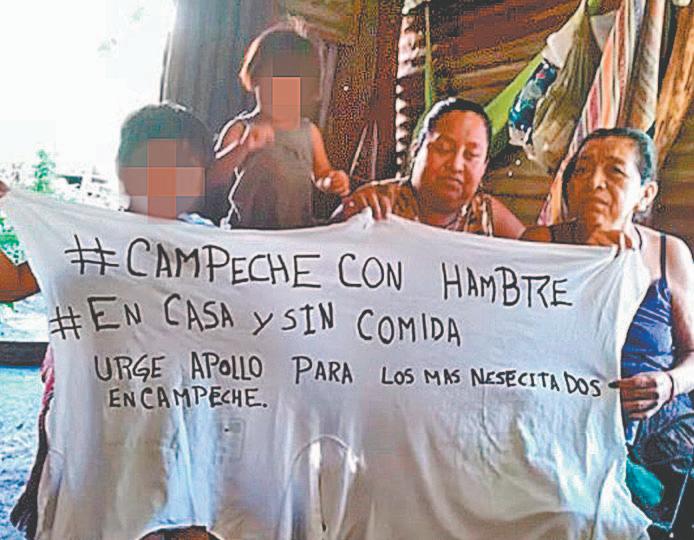 #CAMPECHE CON HAMBRE
#EN CASA Y SIN COMIDA
URGE APOLLO PARA LOS MAS NESECITADOS
EN CAMPECHE.